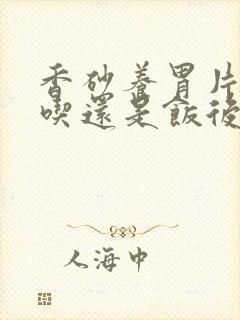 香砂養胃片
喫還是飯後
人海中